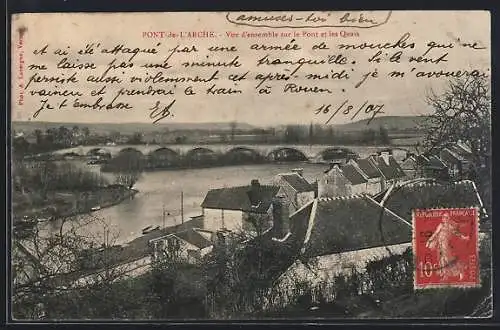 amuses-toi bien
PONT-de-L'ARCHE. - Vue d'ensemble sur le Pont et les Quais
et ai été attaqué par une armée de mouches qui ne
me laisse pas une minute tranquille. Si le vent
persiste aussi violemment cet après-midi je m'avouerai
vaincu et prendrai le train à Rouen.
Je t'Embrasse
16/8/07
Phot. A. Lavergne, Vernon
10c